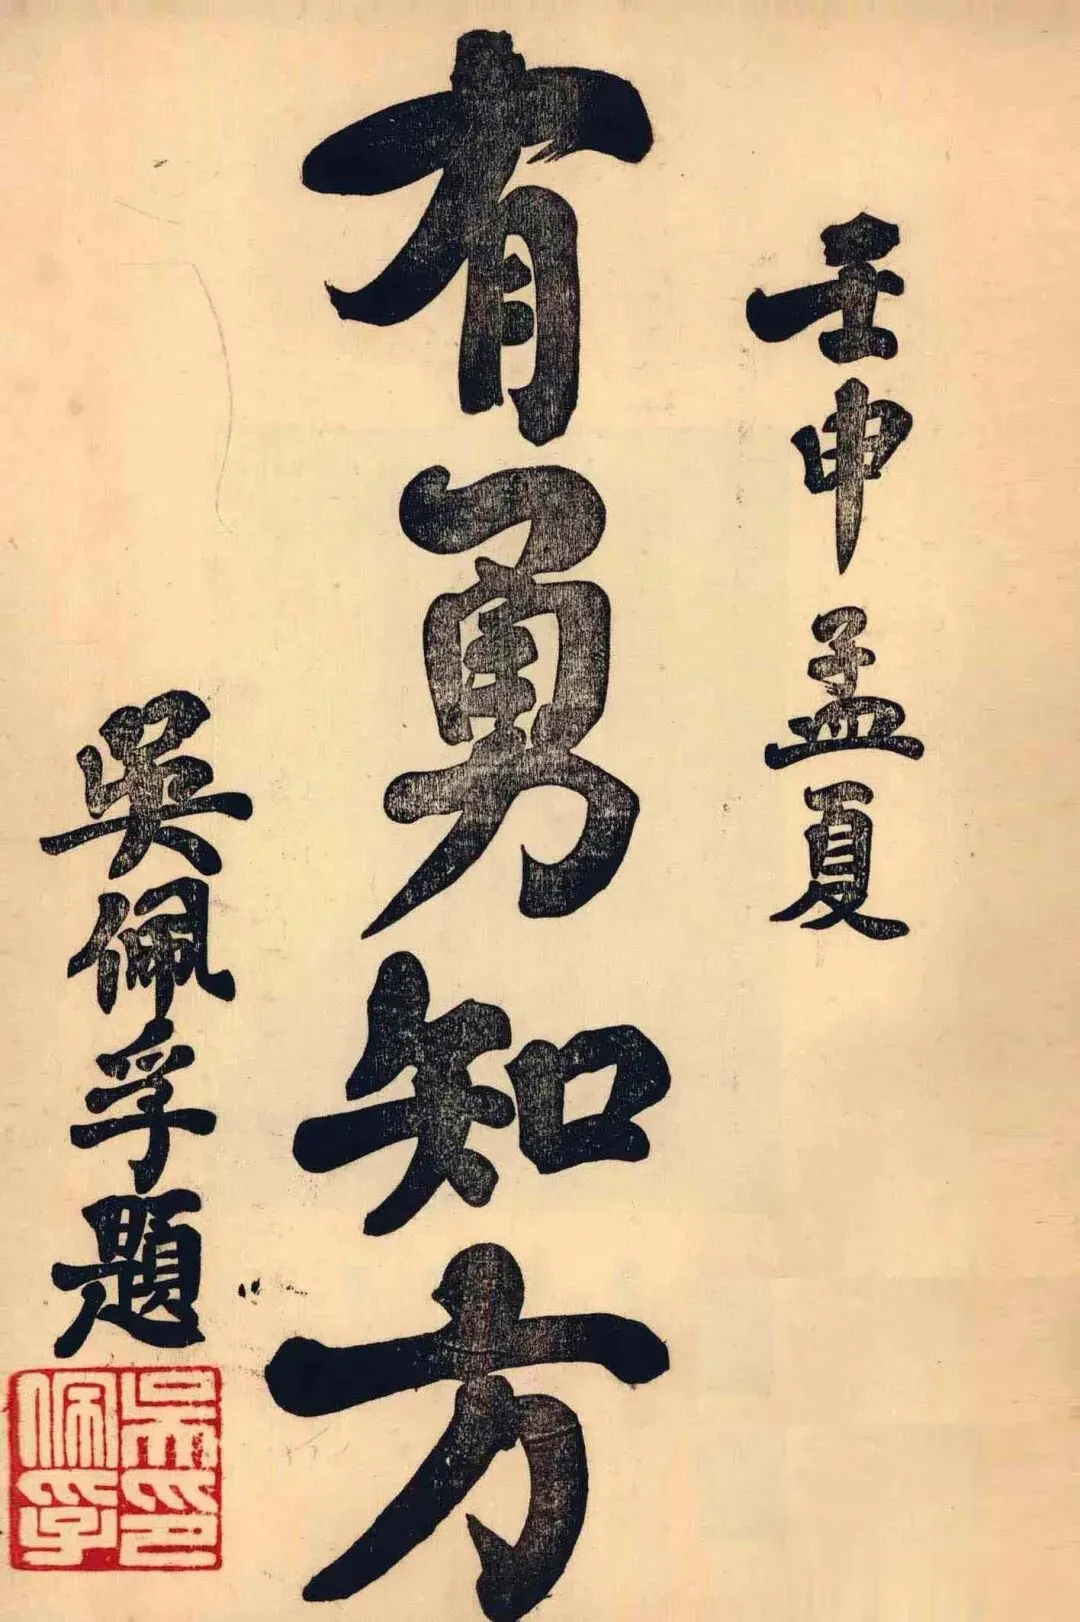 壬申孟夏
有勇知方
吳佩孚題
吳佩孚印